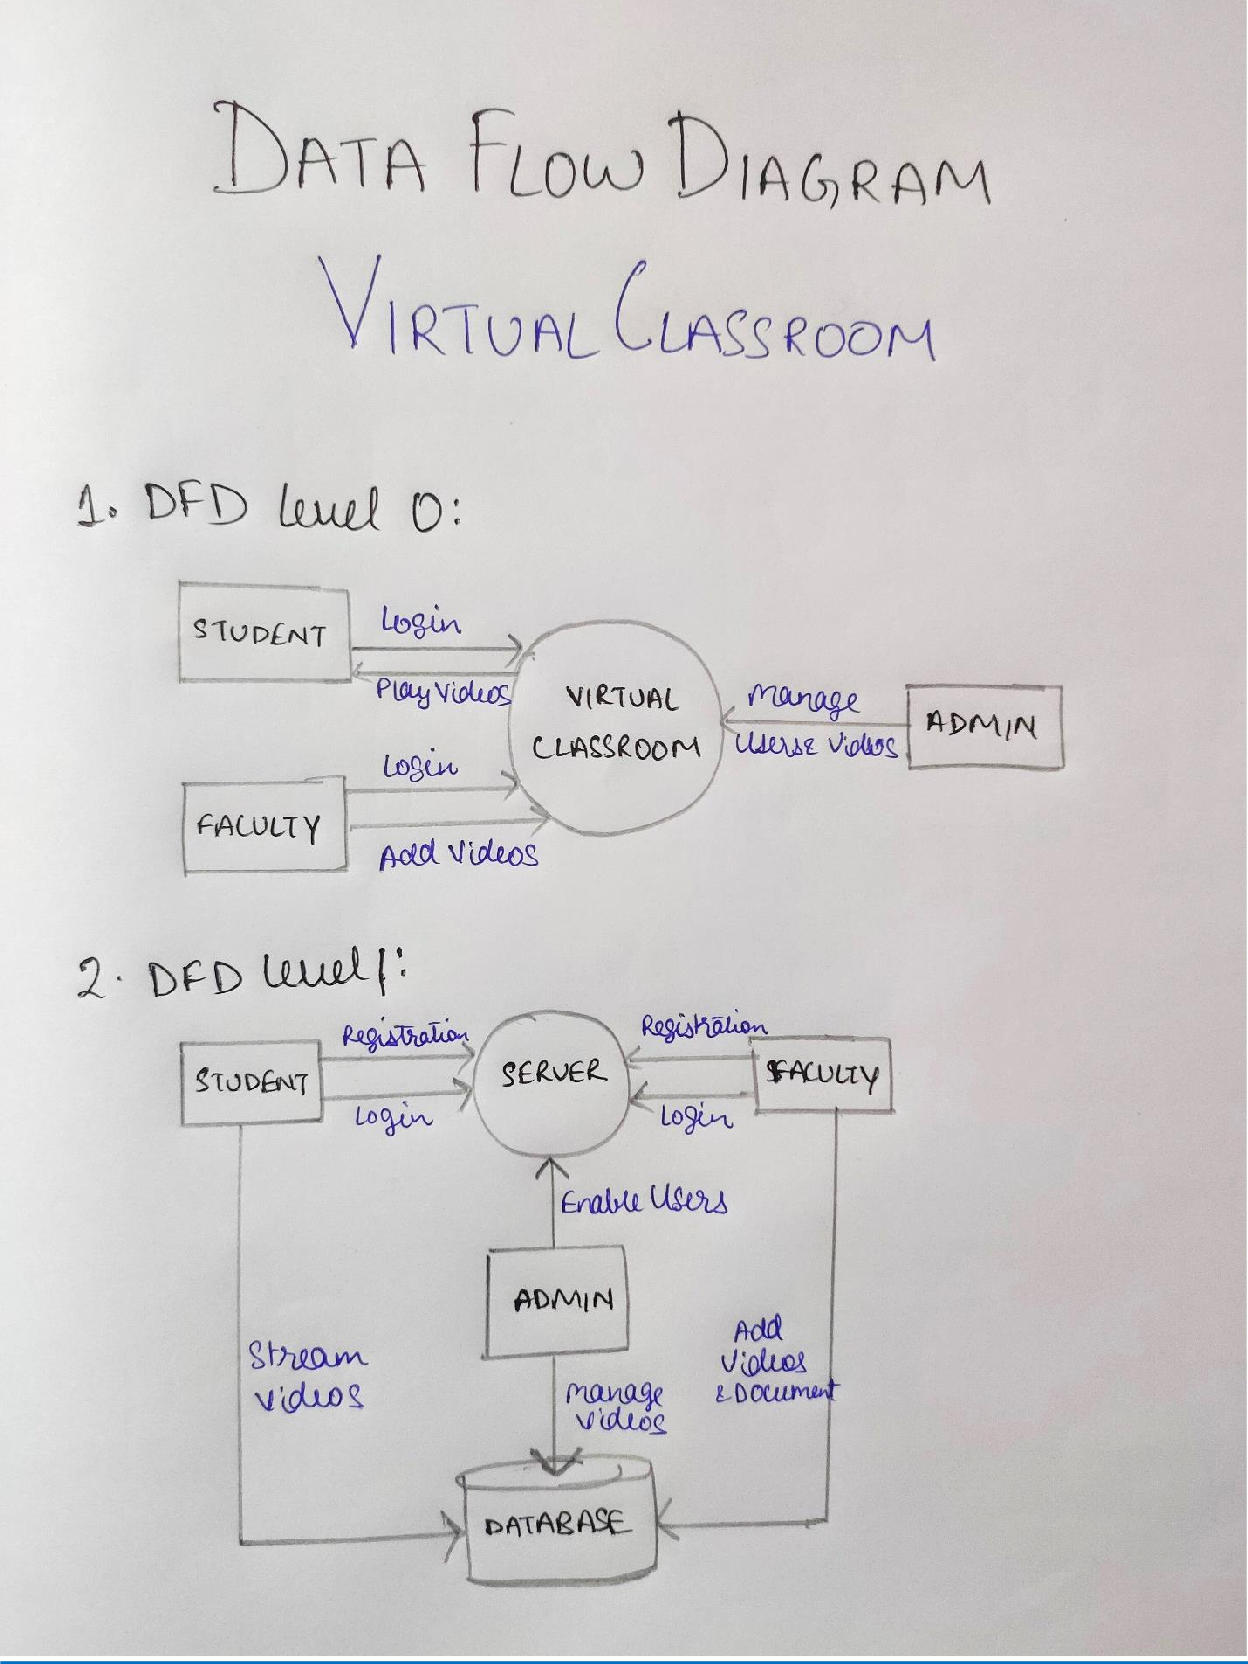 DATA FLOW DIAGRAM
VIRTUAL CLASSROOM
1. DFD level 0:
STUDENT
Login
Play Videos
VIRTUAL
CLASSROOM
Manage
Users & Videos
ADMIN
FACULTY
Login
Add Videos
2. DFD level 1:
STUDENT
Registration
Login
SERVER
Registration
Login
FACULTY
Enable Users
ADMIN
Stream
Videos
Manage
Videos
Add
Videos
& Document
DATABASE